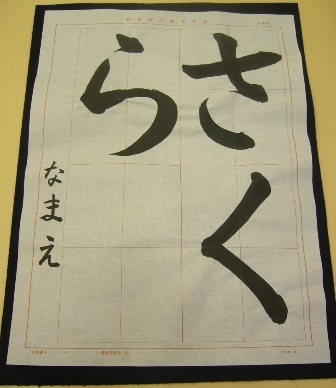 さく
ら
なまえ